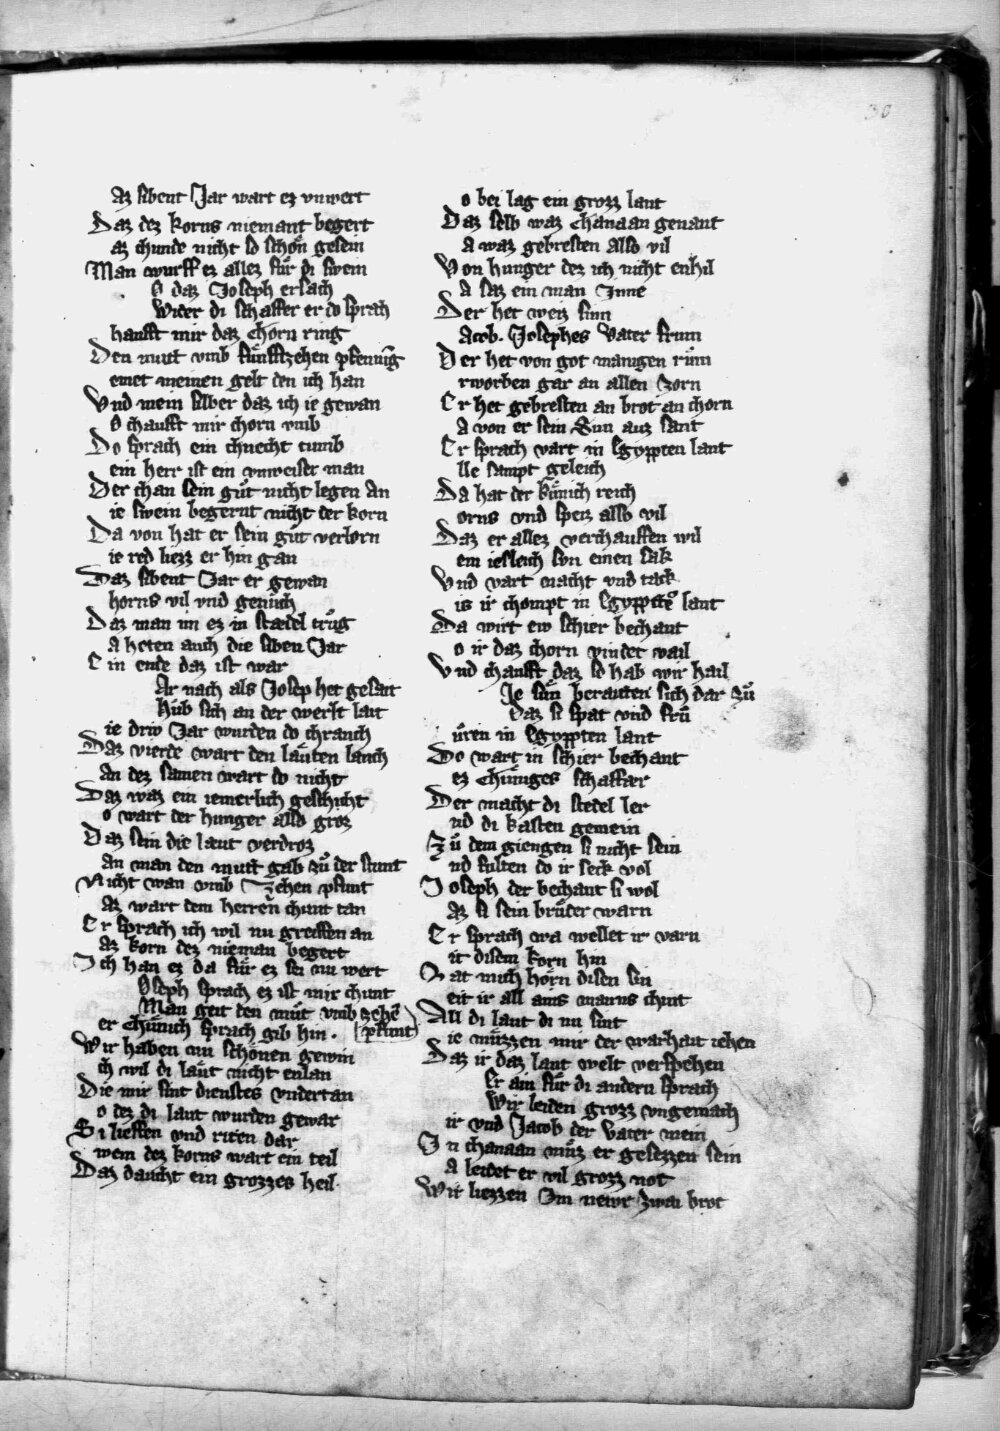 30
az sibent Jar wart ez vnwert
Daz dez korns niemant begert
az chunde nicht so schön gesein
Man wurff ez allez für di swein
o daz Joseph ersach
Wider di schaffer er do sprach
haufft mir daz chorn ring
Den mutt vmb fünfftzehen pfenning
emet meinen gelt den ich han
Vnd mein silber daz ich ie gewan
o chaufft mir chorn vmb
Do sprach ein chnecht tumb
ein herr ist ein vnweiser man
Der chan sein gůt nicht legen an
ie swein begernt nicht der korn
Da von hat er sein gůt verlorn
ie red liezz er hin gan
Daz sibent Jar er gewan
horns vil vnd genůch
Daz man im ez in stædel trůg
A heten auch die siben Jar
Ein ende daz ist war
Ar nach als Josep het gesait
Hůb sich an der werlt lait
ie driv Jar wurden do chranch
Daz vierde wart den läuten lanch
An dez samen wart do nicht
Daz waz ein iemerlich geschicht
o wart der hunger also groz
Daz sein die laut verdroz
an man den mutt gab zů der stunt
Nicht wan vmb Zehen pfunt
Az wart dem herren chunt tan
Er sprach ich wil nu greiffen an
az korn dez nieman begert
Ich han ez da für ez sei nu wert
oseph sprach ez ist mir chunt
Man geit den můt vmb zehē
pfunt
er Chünich sprach gib hin.
Wir haben nu schönen gewin
ch wil di läut nicht enlan
Die mir sint dienstes vndertan
o dez di laut wurden gewar
Si lieffen vnd riten dar
wem dez korns wart ein teil
Daz daucht ein grozzes heil.
o bei lag ein grozz lant
Daz selb waz Chanaan genant
A waz gebresten also vil
Von hunger dez ich nicht enhil
A saz ein man Inne
Der het weiz sinn
acob. Josephes Vater frum
Der het von got manigen rům
rworben gar an allen zorn
Er het gebresten an brot an chorn
A von er sein Sun auz sant
Er sprach vart in Egyppten lant
lle sampt geleich
Da hat der künich reich
orns vnd speiz also vil
Daz er allez verchauffen wil
em iesleich svn einen sak
Vnd vart nacht vnd tack
is ir chompt in Egyppttē lant
Da wirt ew schier bechant
o ir daz chorn vindet vail
Vnd chaufft daz so hab wir hail
Ie sün berauten sich dar zů
Daz si spat vnd frů
ůren in Egyppten lant
Do wart in schier bechant
ez Chüniges schaffær
Der macht di stedel ler
nd di kasten gemein
Zů dem giengen si nicht sein
nd fulten do ir seck vol
Joseph der bechant si wol
Az si sein brůder warn
Er sprach wa wellet ir varn
it disem korn hin
Lat mich hörn disen sin
eit ir all ains manns chint
All di laut di nu sint
ie müzzen mir der warhait iehen
Daz ir daz lant welt verspehen
Er am für di andern sprach
Wir leiden grozz vngemach
ir vnd Jacob der Vater mein
In chanaan můz er gesezzen sein
A leidet er vil grozz not
Wir liezzen Im newr zwai brot